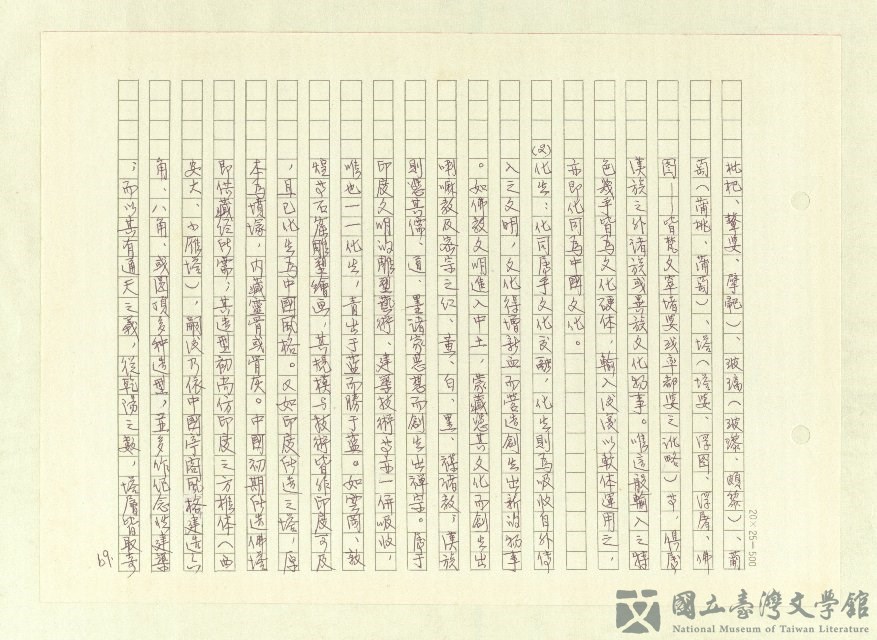 枇杷、鼙婆、
)、玻璃(玻瓈、頗黎)、葡
萄(蒲桃、蒲萄)、塔(塔婆、浮圖、浮屠、佛
圖——皆梵文窣堵婆或率都婆之訛略)等,俱屬
漢族之外諸族或異族文化物事。唯這般輸入之特
色幾乎皆為文化硬体,輸入後後以軟体運用之,
亦即化同為中國文化。
(又)化生:化同屬乎文化
,化生則為吸收自外傳
入之文明,文化得增新血而營造創生出新的物事
。如佛教文明進入中土,蒙藏
其文化而創生出
喇嘛教及密宗之紅、黃、白、黑、
諸教;漢族
則
其儒、道、墨諸家思想而創生出禪宗。屬于
印度文明的雕塑藝術、建築技術等亦一併吸收,
唯也一一化生,青出于藍而勝于藍。如雲岡、敦
煌等石窟雕塑繪畫,其規模与技術皆作印度
及
,且已化生為中國風格。又如印度所造之塔,原
本為墳塚,內藏靈骨或骨灰。中國初期所造佛塔
即供藏經所需;其造型初尚仿印度之方椎体(西
安大、小雁塔),嗣後乃依中國亭閣風格建造六
角、八角、或圓頂多種造型,並多作紀念性建築
;而以其有通天之義,從乾陽之數,塔層皆取奇
69.
20×25=500
國立臺灣文學館
National Museum of Taiwan Literature